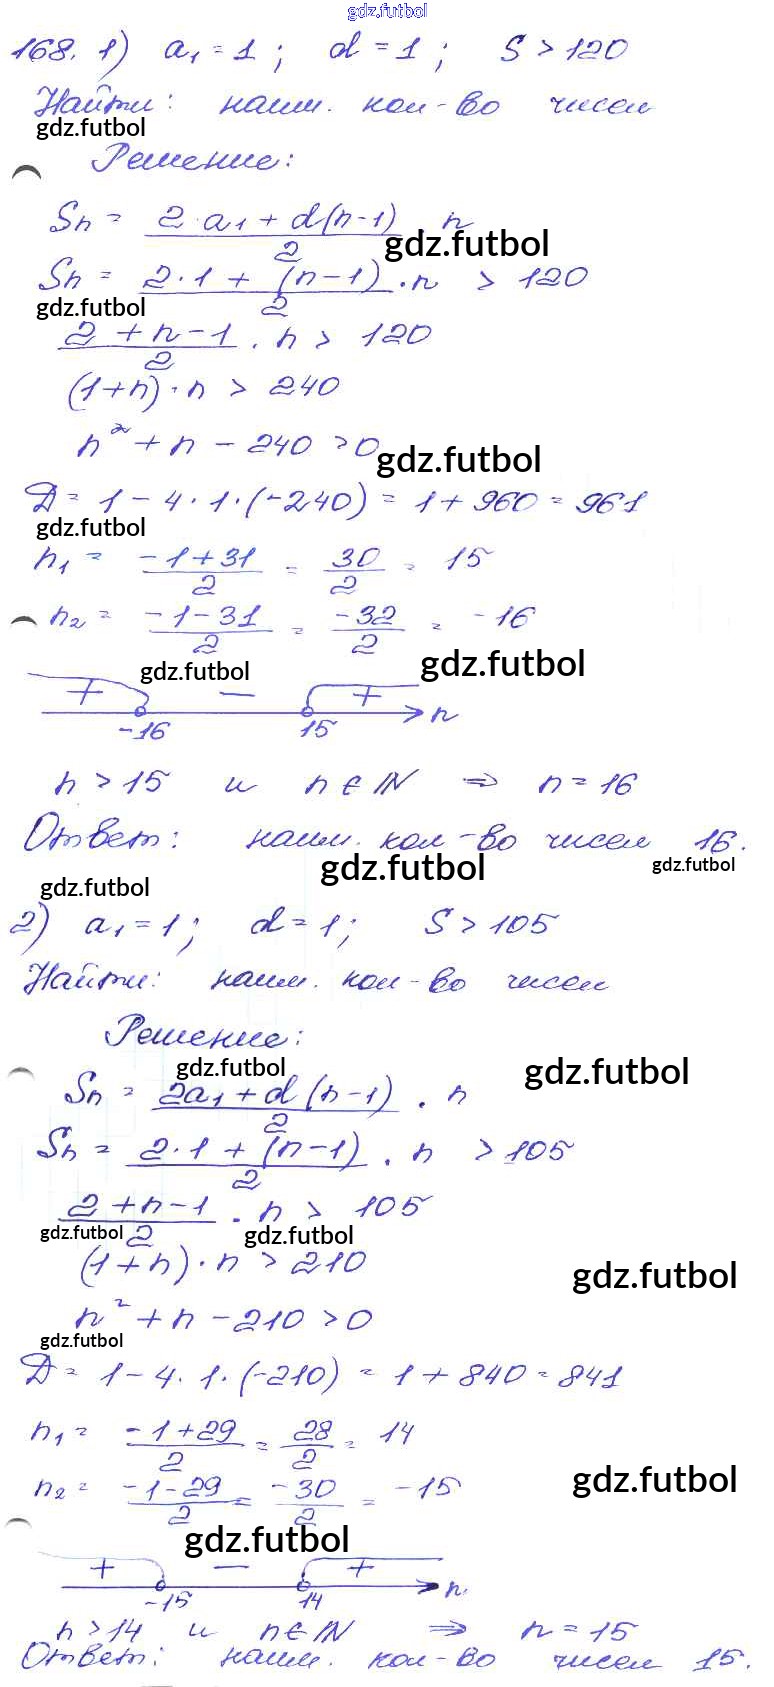 gdz.futbol
168. 1) a₁ = 1 ; d = 1 ; S > 120
Найти: наим. кол-во чисел
gdz.futbol
Решение:
Sn = (2·a₁ + d(n-1))/2 · n
gdz.futbol
Sn = (2·1 + (n-1))/2 · n > 120
gdz.futbol
(2 + n - 1)/2 · n > 120
(1+n)·n > 240
n² + n - 240 > 0
gdz.futbol
Д = 1 - 4·1·(-240) = 1 + 960 = 961
gdz.futbol
n₁ = (-1+31)/2 = 30/2 = 15
n₂ = (-1-31)/2 = -32/2 = -16
gdz.futbol gdz.futbol
+ − +
-16 15 n
n > 15 и n ∈ N ⇒ n = 16
Ответ: наим. кол-во чисел 16.
gdz.futbol gdz.futbol
gdz.futbol
2) a₁ = 1 ; d = 1 ; S > 105
Найти: наим. кол-во чисел
Решение:
gdz.futbol gdz.futbol
Sn = (2a₁ + d(n-1))/2 · n
Sn = (2·1 + (n-1))/2 · n > 105
(2 + n - 1)/2 · n > 105
gdz.futbol gdz.futbol
(1+n)·n > 210
gdz.futbol
n² + n - 210 > 0
gdz.futbol
Д = 1 - 4·1·(-210) = 1 + 840 = 841
n₁ = (-1+29)/2 = 28/2 = 14
n₂ = (-1-29)/2 = -30/2 = -15
gdz.futbol
gdz.futbol
+ − +
-15 14 n
n > 14 и n ∈ N ⇒ n = 15
Ответ: наим. кол-во чисел 15.